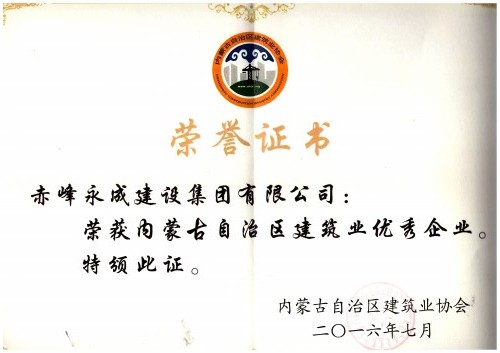 内蒙古自治区建筑业协会
荣誉证书
赤峰永成建设集团有限公司：
荣获内蒙古自治区建筑业优秀企业。
特颁此证。
内蒙古自治区建筑业协会
二〇一六年七月